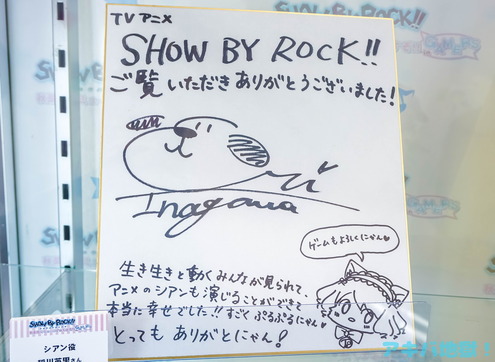 TVアニメ
SHOW BY ROCK!!
ご覧いただきありがとうございました!
Inagawa
ゲームもよろしくにゃん♥
生き生きと動くみんなが見られて、
アニメのシアンも演じることができて
本当に幸せでした!!すごくぷるぷるにゃん♥
とってもありがとにゃん!
SHOW BY ROCK!!
シアン役
稲川英里さん
アキバ総研